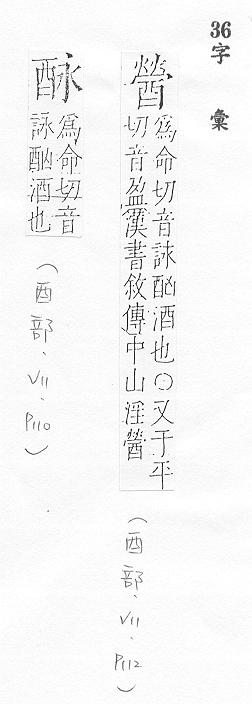 36字 彙
醟
爲命切音詠酗酒也○又于平
切音盈漢書敘傳中山淫醟
(酉部、V11、P112)
爲命切音
詠酗酒也
(酉部、V11、P110)